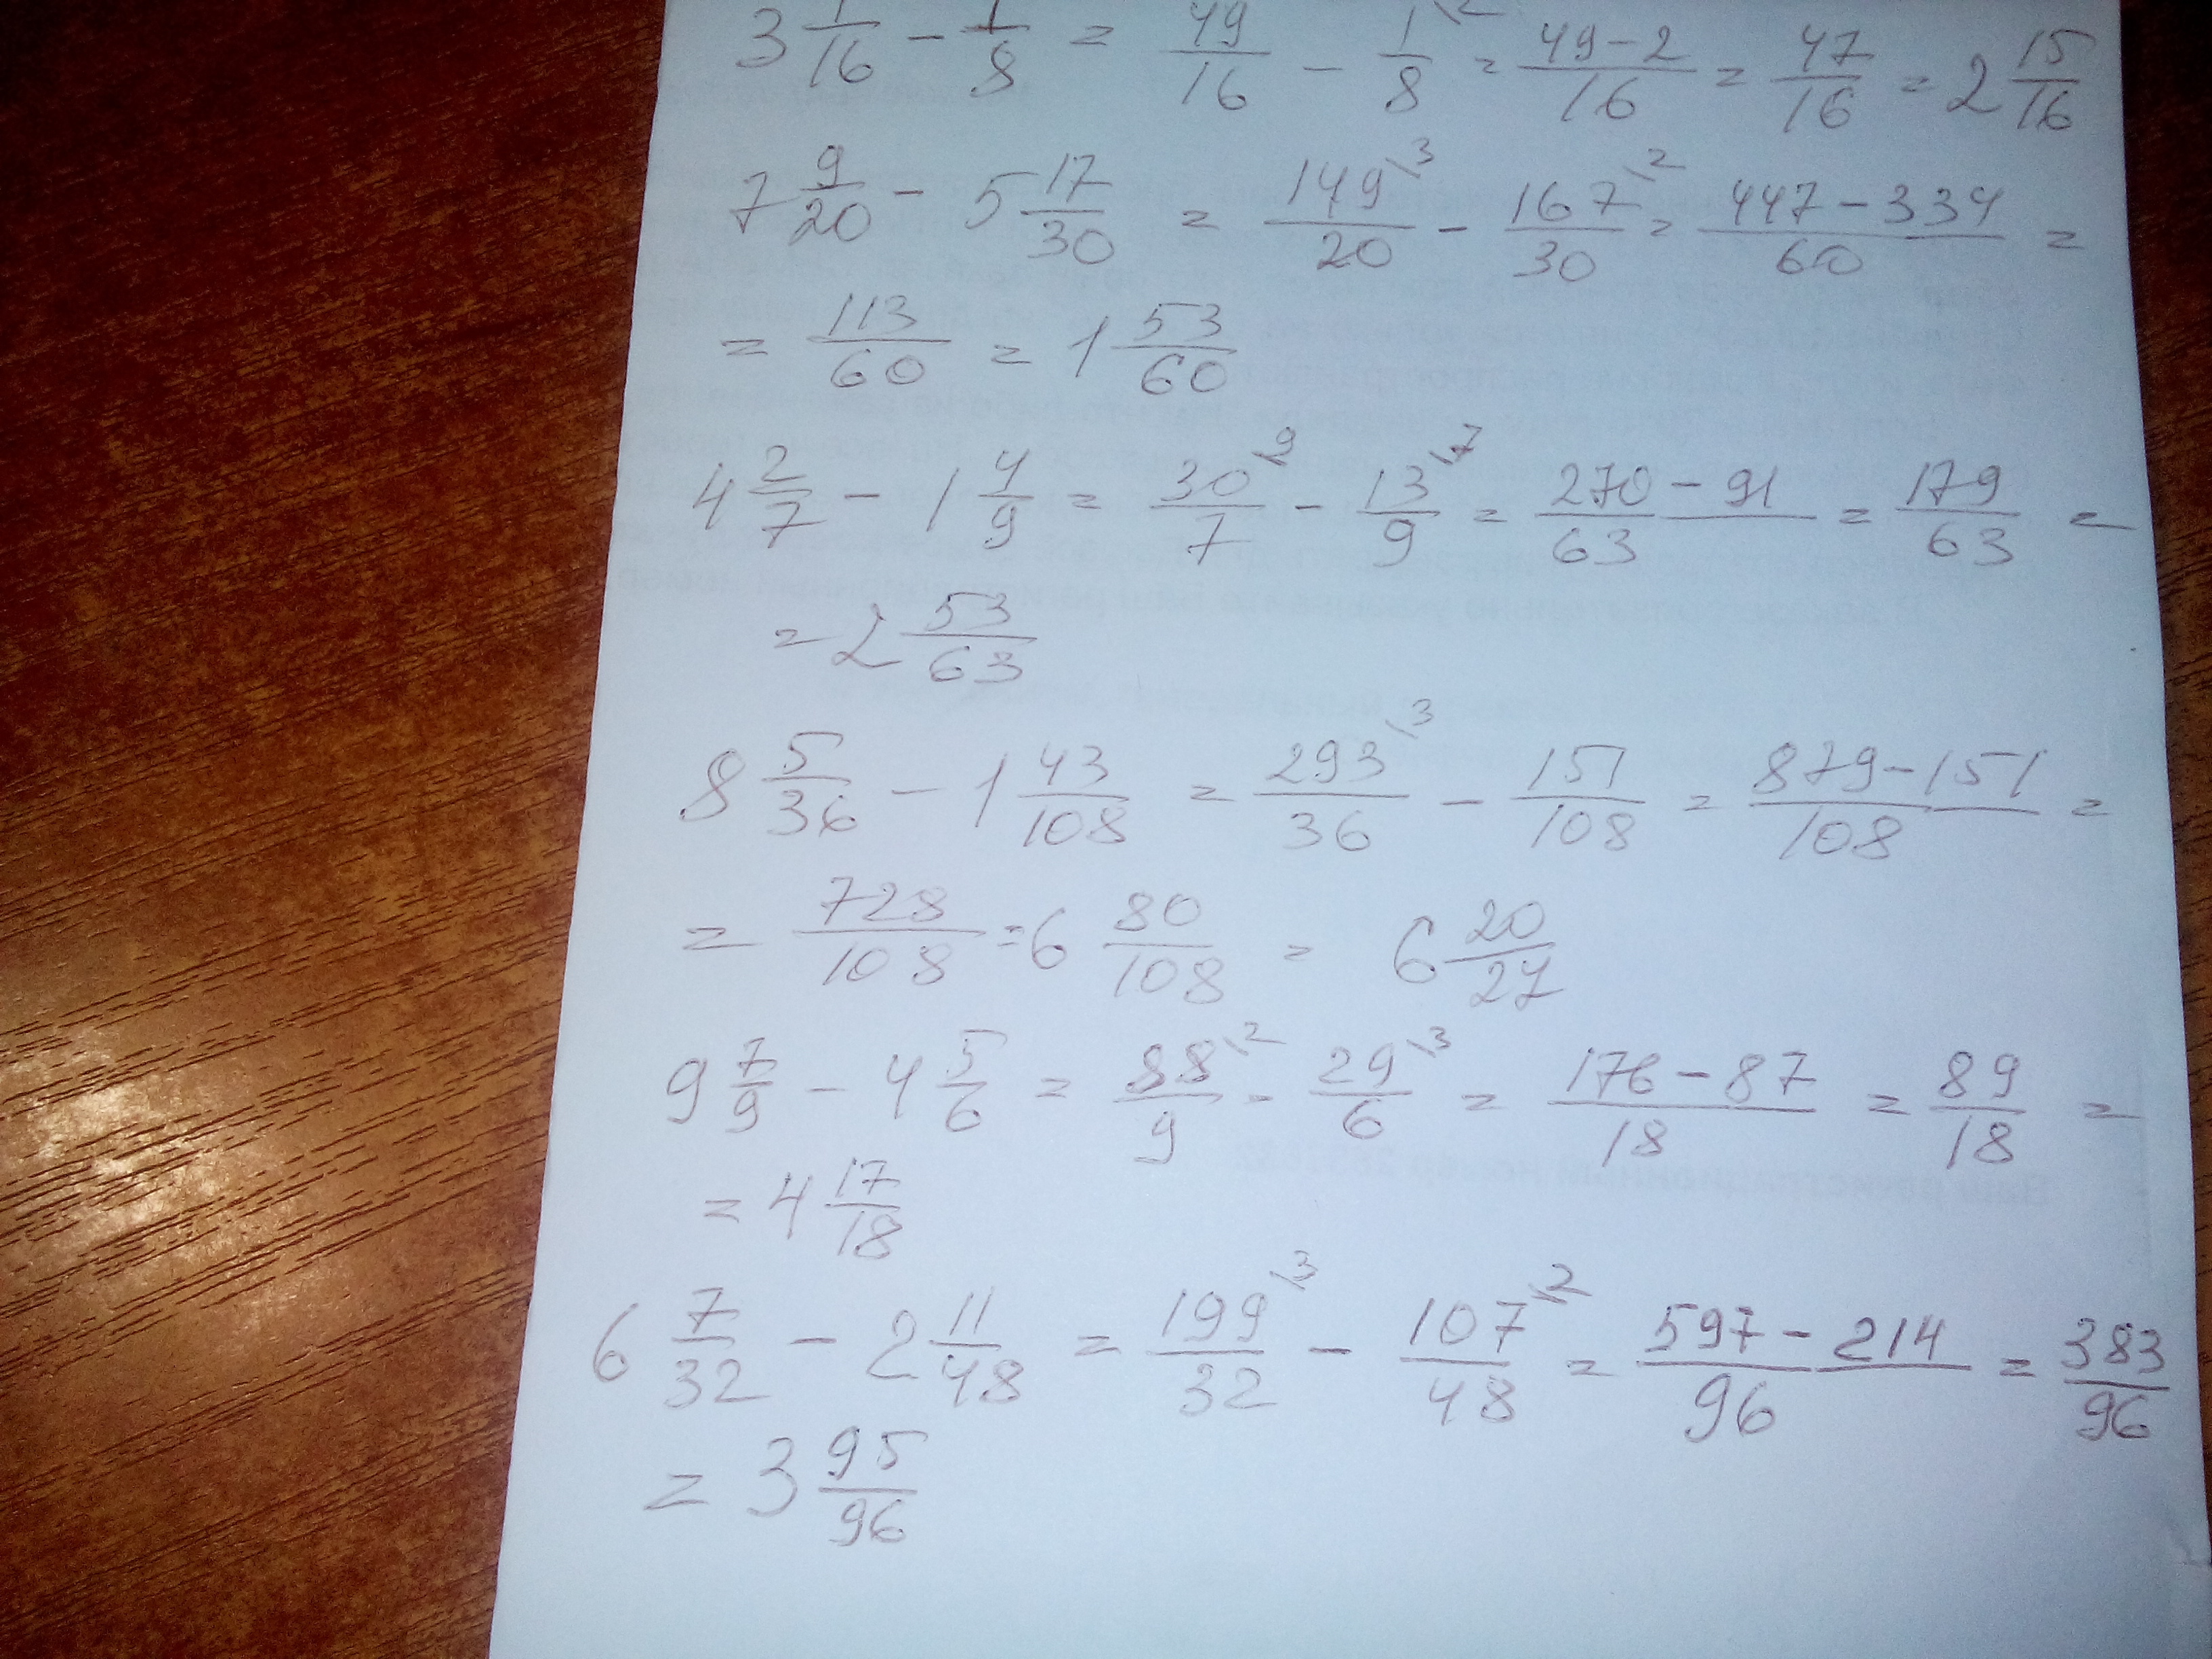 3 1/16 - 1/8 = 49/16 - 1/8 \2 = 49-2/16 = 47/16 = 2 15/16
7 9/20 - 5 17/30 = 149/20 \3 - 167/30 \2 = 447-334/60 =
= 113/60 = 1 53/60
4 2/7 - 1 4/9 = 30/7 \9 - 13/9 \7 = 270-91/63 = 179/63 =
= 2 53/63
8 5/36 - 1 43/108 = 293/36 \3 - 151/108 = 879-151/108 =
= 728/108 = 6 80/108 = 6 20/27
9 7/9 - 4 5/6 = 88/9 \2 - 29/6 \3 = 176-87/18 = 89/18 =
= 4 17/18
6 7/32 - 2 11/48 = 199/32 \3 - 107/48 \2 = 597-214/96 = 383/96
= 3 95/96